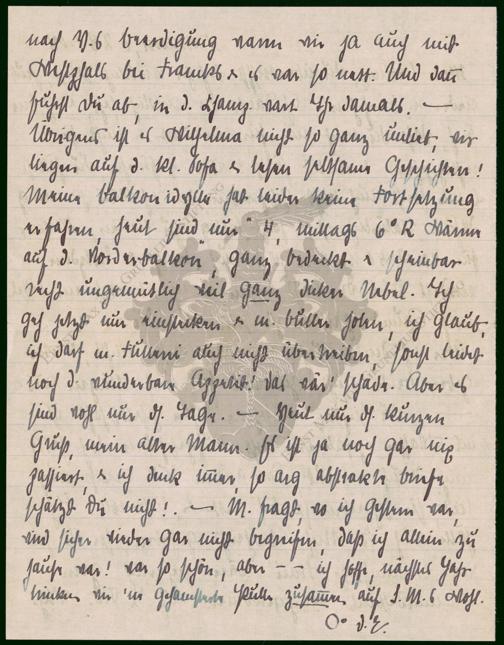 nach V.s beerdigung waren wir ja auch mit
Westphals bei Francks & es war so nett. Und dann
fuhrst Du ab, in d. wart Ihr damals. —
Übrigens ist es Wilhelma nicht so ganz unlieb, wir
liegen auf d. kl. Sofa & lesen seltsame Geschichten!
Meine balkonidylle hat leider keine Fortsetzung
erfahren, heut sind nur 4, mittags 6° R Wärme
auf d. "Vorderbalkon", ganz bedeckt & scheinbar
recht ungemütlich weil ganz dicker Nebel. Ich
geh jetzt nur einstecken & m. butter holen, ich glaub,
ich darf m. auch nicht übertreiben, sonst leidet
noch d. wunderbare Appetit! das wär' schade. Aber es
sind wohl nur ds. Tage. — Heut nur ds. kurzen
Gruß, mein alter Mann. Es ist ja noch gar nix
passiert, & ich denk immer, so arg abstrakte briefe
schätzt Du nicht!. — M. fragt, wo ich gestern war,
wird sicher wieder gar nicht begreifen, daß ich allein zu
hause war! war so schön, aber –– ich hoffe, nächstes Jahr
trinken wir 'ne Pulle zusamen auf S. M.s Wohl.
O° d. E.